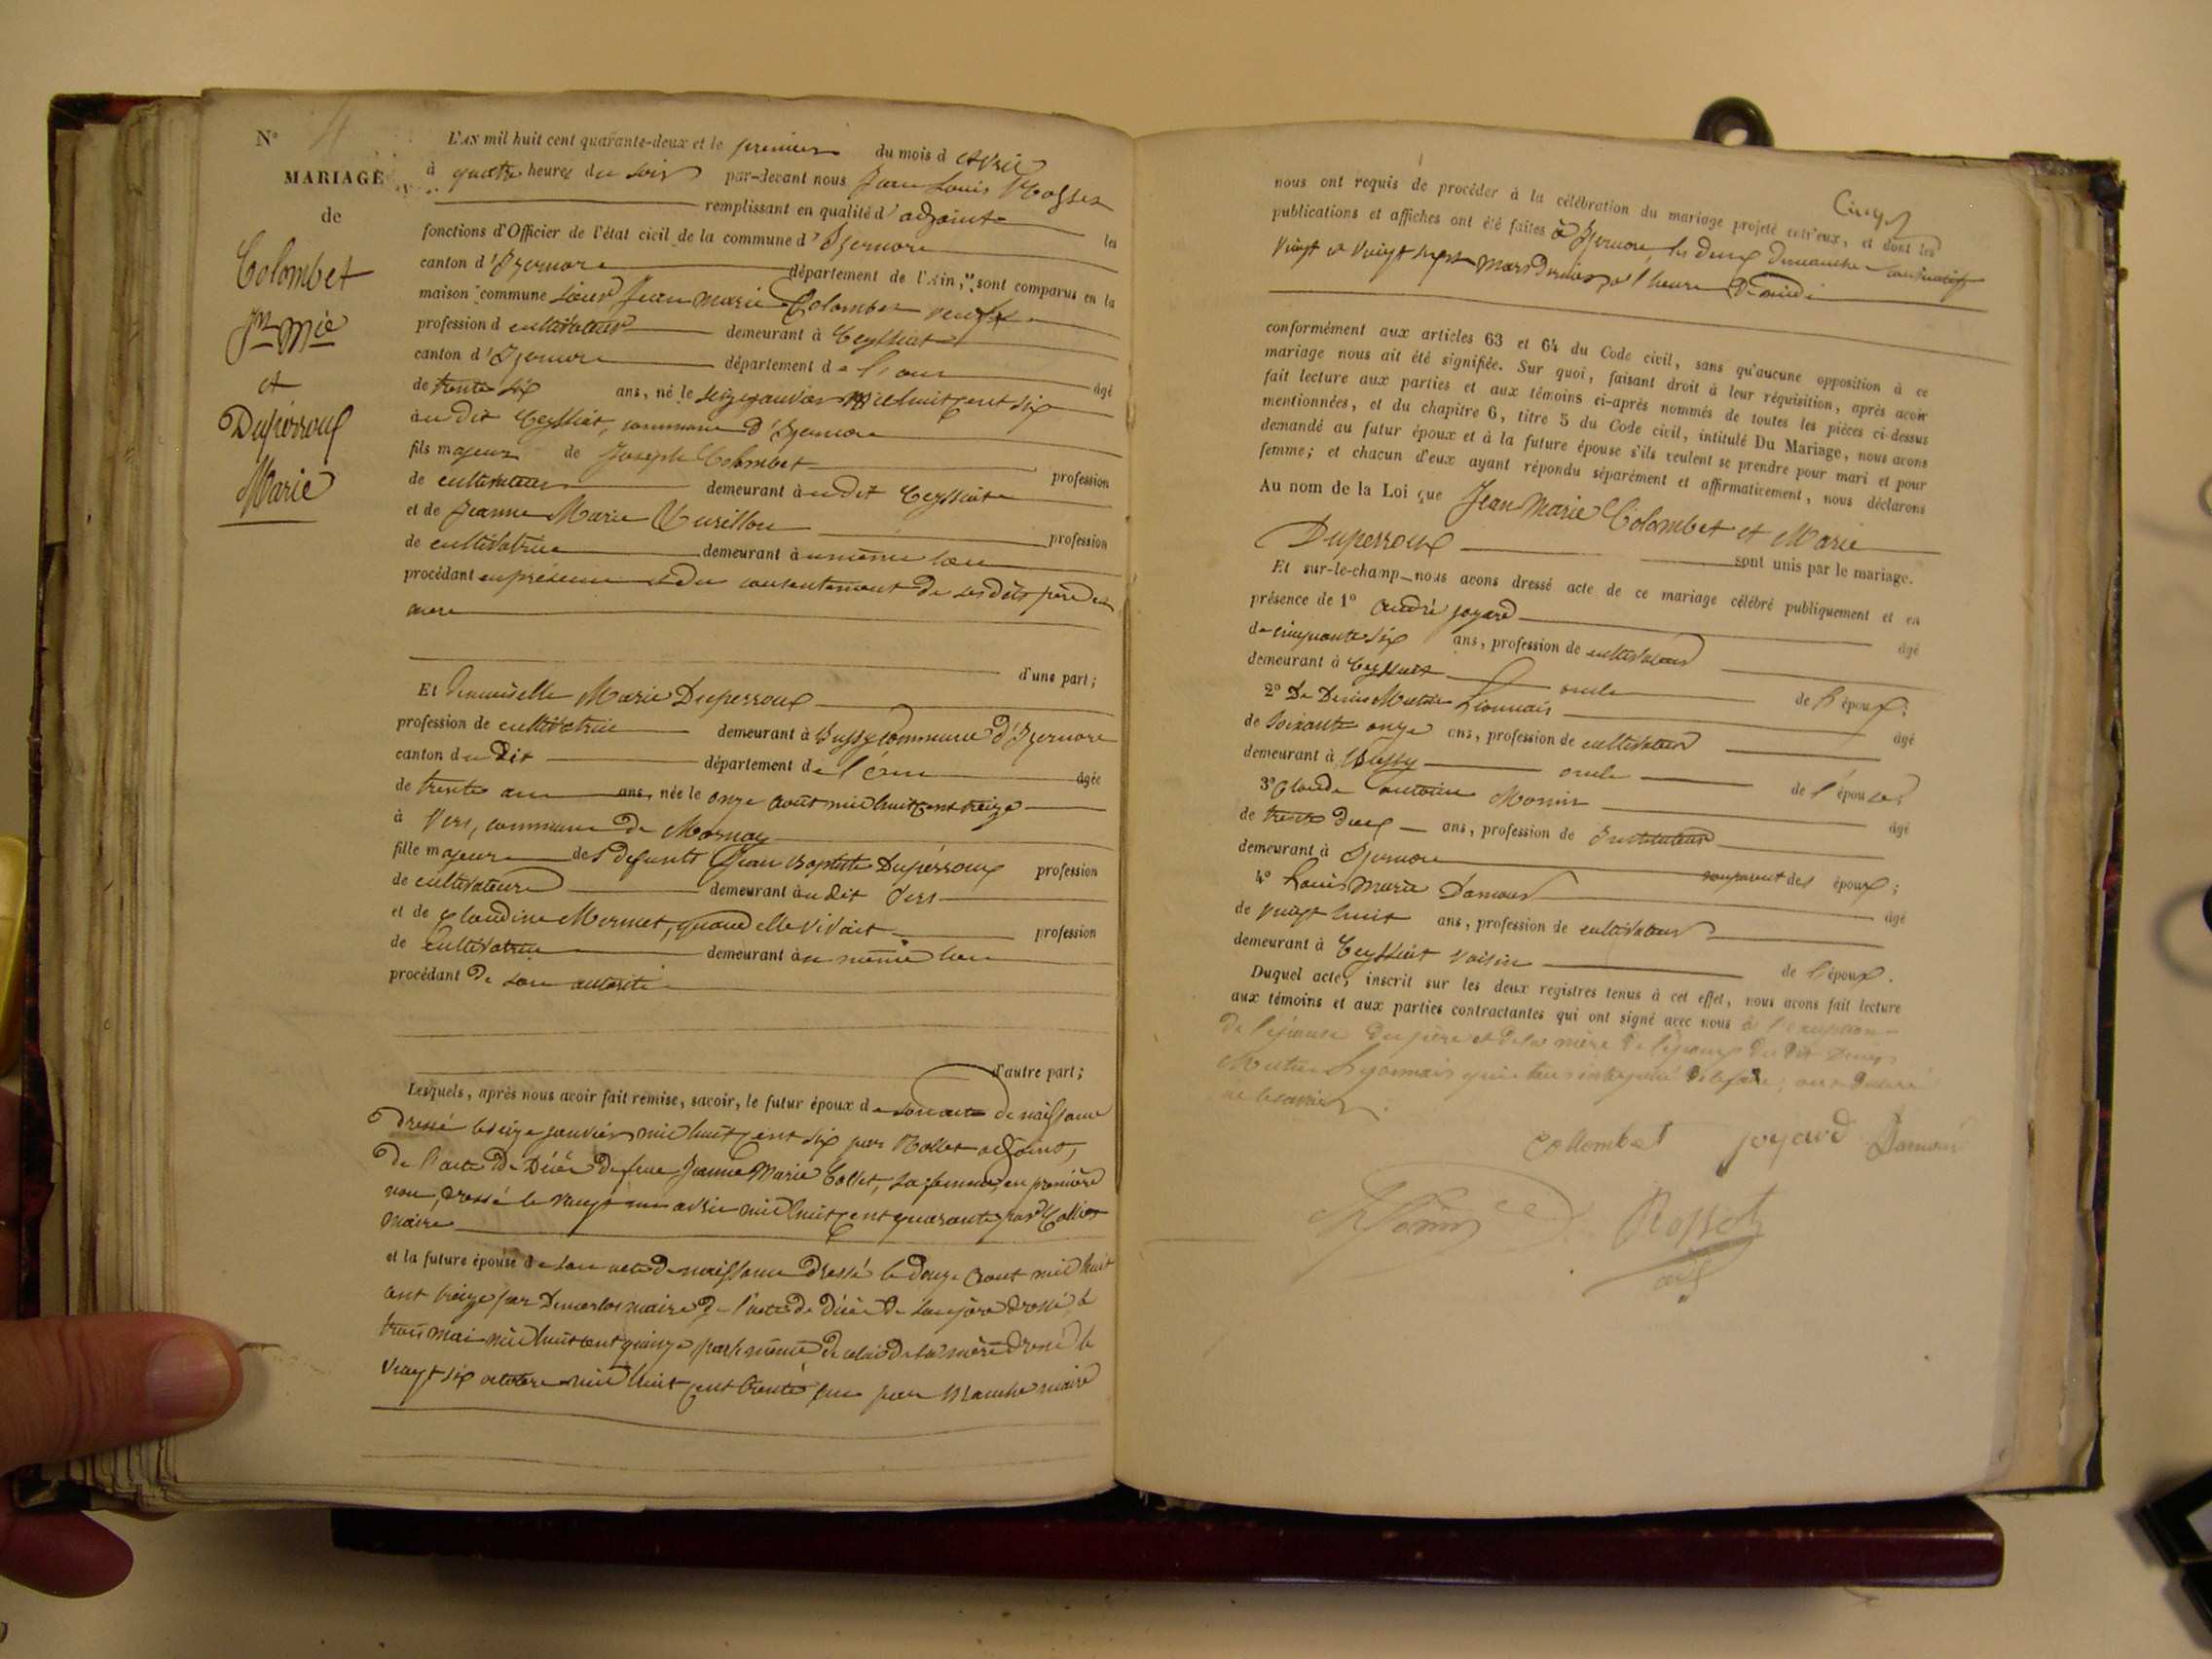 N° 4
MARIAGE
de
Colombet
Jn Mie
et
Duperroux
Marie
L'AN mil huit cent quarante-deux et le premier du mois d'avril
à quatre heures du soir par-devant nous Jean Louis Rosset
remplissant en qualité d'adjoint les
fonctions d'Officier de l'état civil de la commune d'Izernore
canton d'Izernore département de l'Ain, sont comparus en la
maison commune Sieur Jean Marie Colombet veuf
profession de cultivateur demeurant à Ceyssiat
canton d'Izernore département de l'ain âgé
de trente six ans, né le seize janvier mil huit cent six
au dit Ceyssiat, commune d'Izernore
fils majeur de Joseph Colombet profession
de cultivateur demeurant au dit Ceyssiat
et de Jeanne Marie profession
de cultivatrice demeurant au même lieu
procédant en présence et du consentement de ses dits père et
mère
d'une part;
Et demoiselle Marie Duperroux
profession de cultivatrice demeurant à Bussy commune d'Izernore
canton du dit département de l'ain âgée
de trente ans, née le onze août mil huit cent treize
à Vers, commune de Mornay
fille majeure des défunts Jean Baptiste Duperroux profession
de cultivateur demeurant au dit Vers
et de Claudine Mermet, quand elle vivait profession
de cultivatrice demeurant au même lieu
procédant de son autorité
d'autre part;
Lesquels, après nous avoir fait remise, savoir, le futur époux de son acte de naissance
dressé le seize janvier mil huit cent six par Rollet adjoint,
de l'acte de décès de feue Jeanne Marie Collet, sa femme en première
nou, dressé le vingt un avril mil huit cent quarante par
maire
et la future épouse de son acte de naissance dressé le douze août mil huit
cent treize par maire de l'acte de décès de son père dressé le
trois mai mil huit cent quinze par le même de celui de sa mère dressé le
vingt six octobre mil huit cent trente un par maire
nous ont requis de procéder à la célébration du mariage projeté entr'eux, et dont les
publications et affiches ont été faites à Izernore les deux dimanches consécutifs
vingt et vingt sept mars dernier à l'heure de midi
conformément aux articles 63 et 64 du Code civil, sans qu'aucune opposition à ce
mariage nous ait été signifiée. Sur quoi, faisant droit à leur réquisition, après avoir
fait lecture aux parties et aux témoins ci-après nommés de toutes les pièces ci-dessus
mentionnées, et du chapitre 6, titre 5 du Code civil, intitulé Du Mariage, nous avons
demandé au futur époux et à la future épouse s'ils veulent se prendre pour mari et pour
femme; et chacun d'eux ayant répondu séparément et affirmativement, nous déclarons
Au nom de la Loi que Jean Marie Colombet et Marie
Duperroux sont unis par le mariage.
Et sur-le-champ nous avons dressé acte de ce mariage célébré publiquement et en
présence de 1° André joyard âgé
de cinquante six ans, profession de cultivateur
demeurant à Ceyssiat oncle de l'époux;
2° De Denis Lionnais âgé
de soixante onze ans, profession de cultivateur
demeurant à Bussy oncle de l'épouse;
3° Claude antoine Monin âgé
de trente deux ans, profession de Instituteur
demeurant à Izernore non parent des époux;
4° Louis Marie Damour âgé
de vingt huit ans, profession de cultivateur
demeurant à Ceyssiat voisin de l'époux.
Duquel acte, inscrit sur les deux registres tenus à cet effet, nous avons fait lecture
aux témoins et aux parties contractantes qui ont signé avec nous à l'exception
de l'épouse du père et de la mère de l'époux du dit Denis
Lyonnais qui tous de le faire, ont déclaré
ne le savoir.
Collombet joyard Damour
Monin Rosset
adj